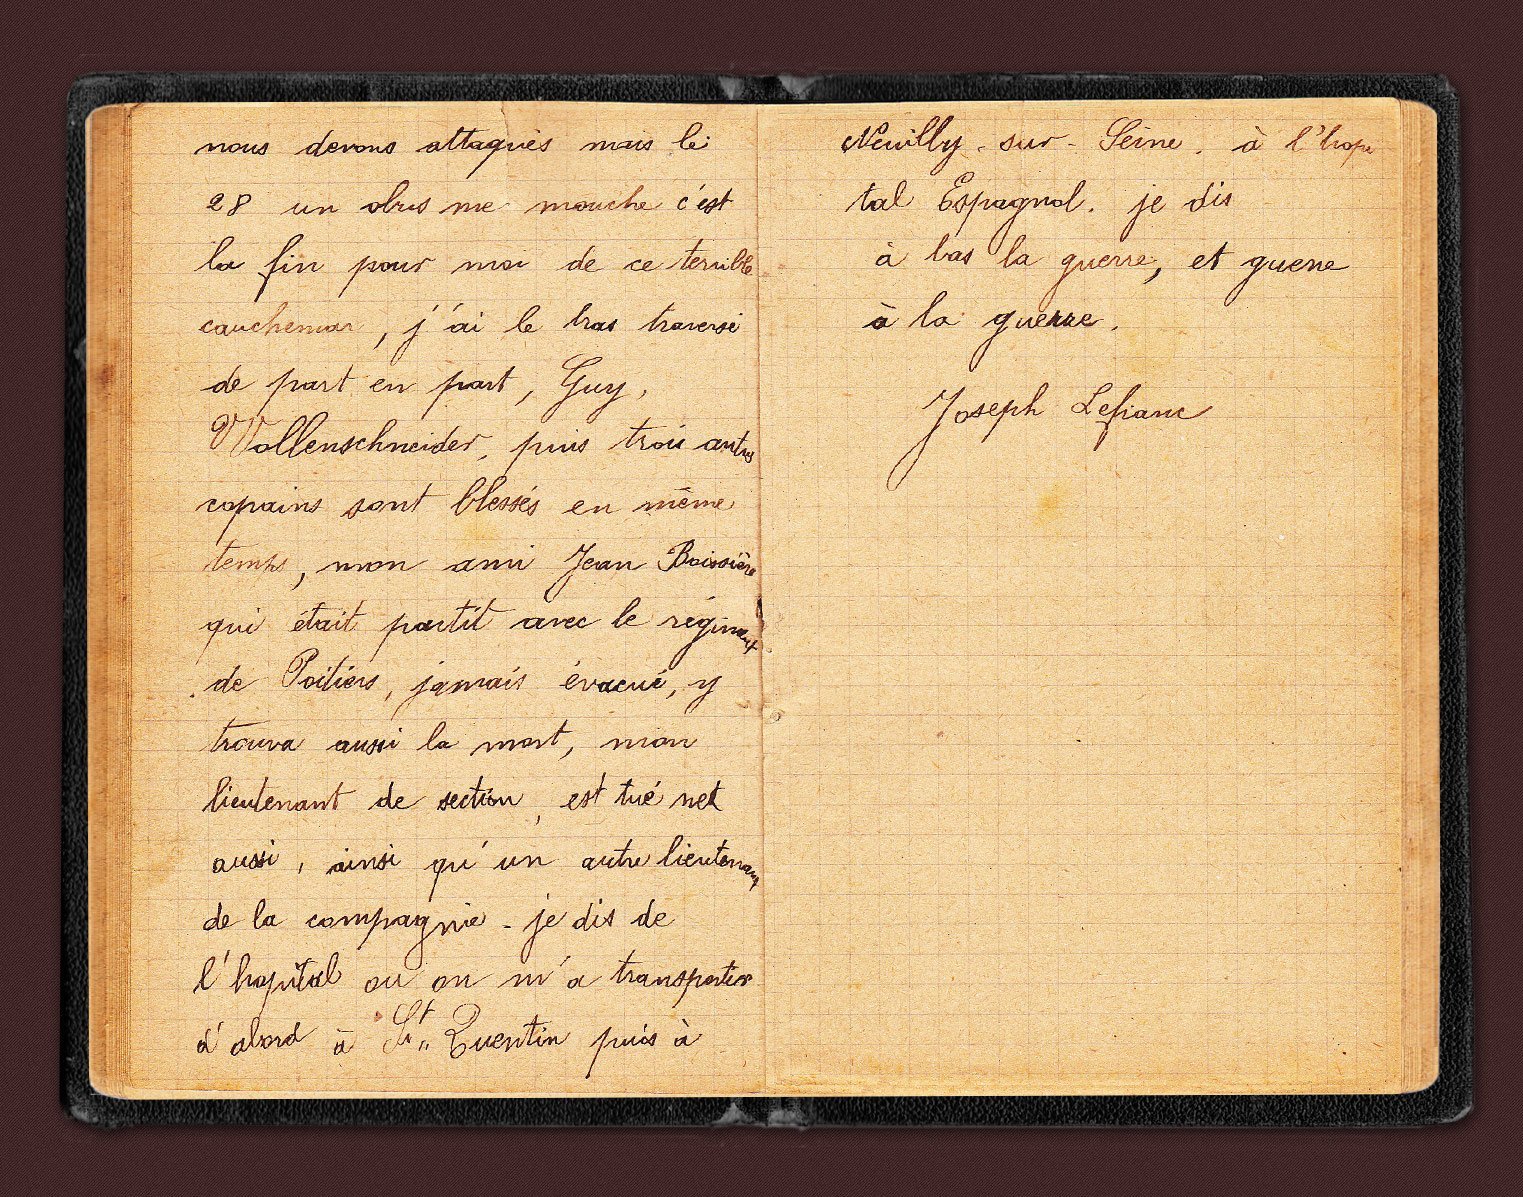 nous devons attaqués mais le
28 un obus me mouche c'est
la fin pour moi de ce terrible
cauchemar, j'ai le bras traversé
de part en part, Guy,
Wollenschneider, puis trois autres
copains sont blessés en même
temps, mon ami Jean Boissière
qui était partit avec le régiment
de Poitiers, jamais évacué, y
trouva aussi la mort, mon
lieutenant de section, est tué net
aussi, ainsi qu'un autre lieutenant
de la compagnie - je dis de
l'hopital ou on m'a transporter
d'abord à St Quentin puis à
Neuilly-sur-Seine. à l'hopi
tal Espagnol. je dis
à bas la guerre, et guerre
à la guerre.
Joseph Lefranc